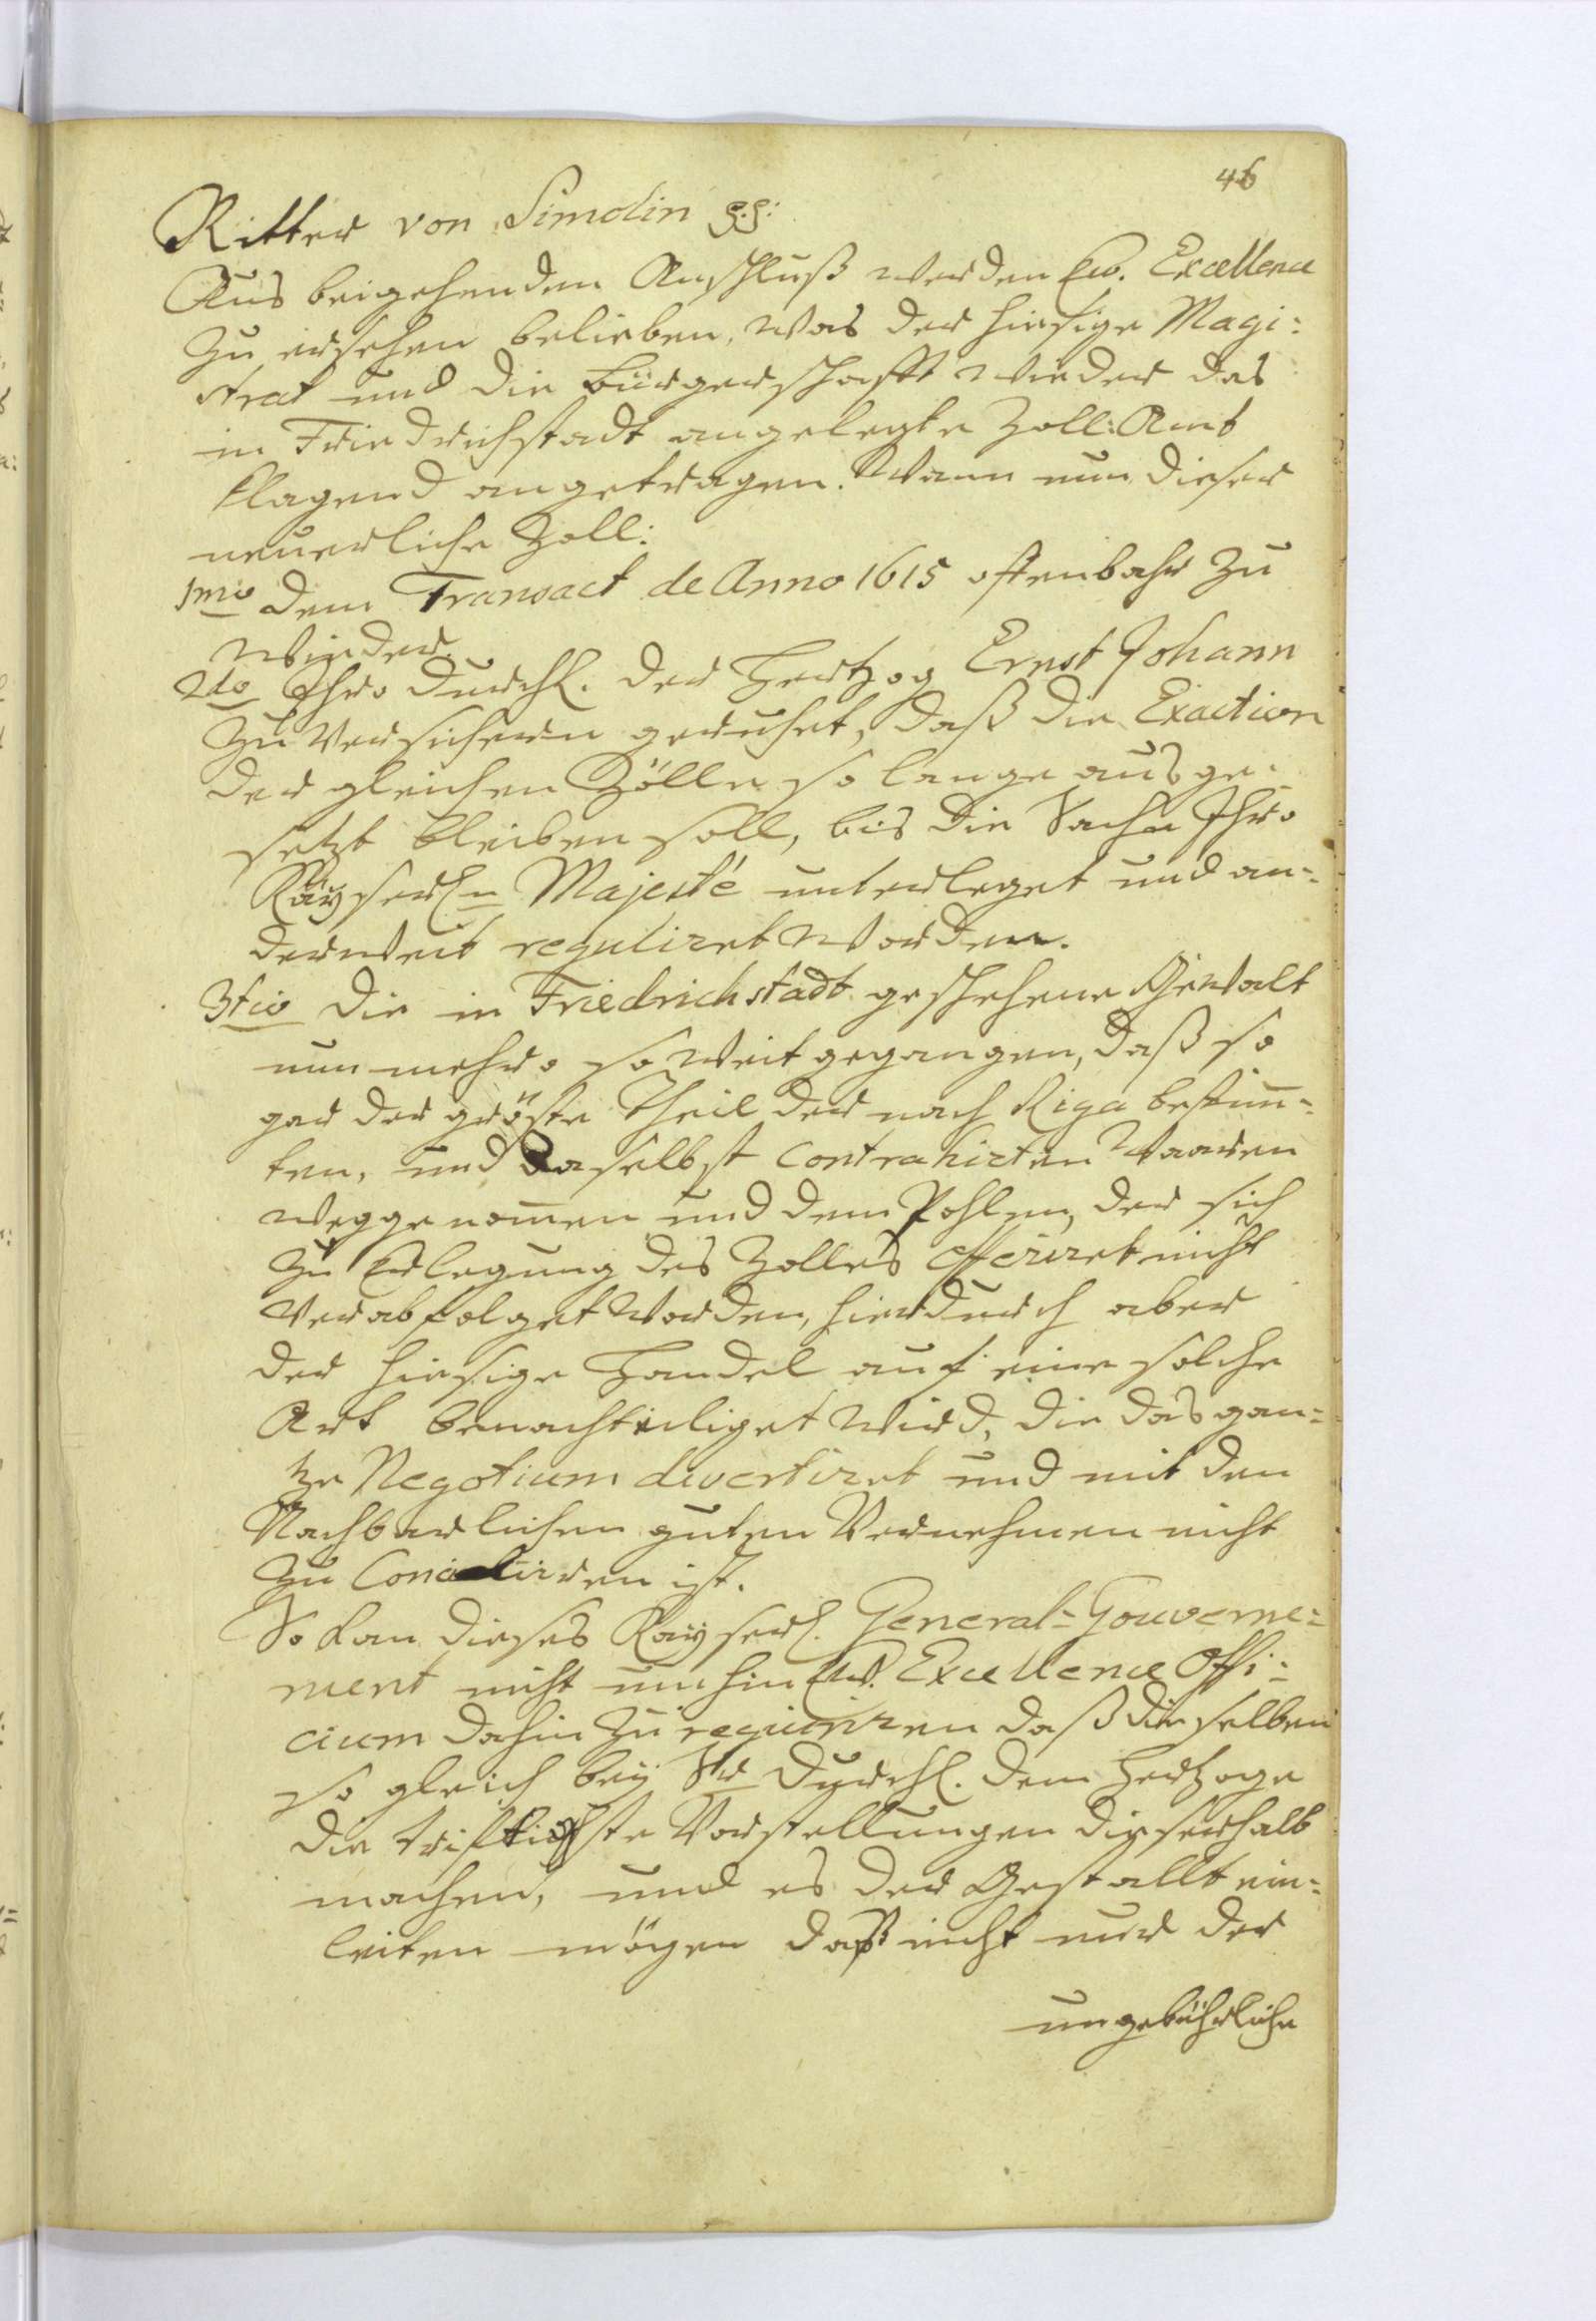 46
Ritter von Simolin p.p.
Aus beigehenden Anschluß werden Ew. Excellence
zu ersehen belieben, was der hiesige Magi:
strat und die Bürgerschafft wieder das
in Friedrichstadt angelegte Zoll: Amt
klagend angetragen. Wann nun dieser
neuerliche Zoll:
1mo dem Transact de Anno 1615 offenbahr zu
wieder.
2do Ihro Durchl. der Hertzog Ernst Johann
zu versichern geruhet, daß die Exaction
der gleichen Zölle so lange ausge:
setzt bleiben soll, bis die Sache Ihro
Kayserln Majesté unterleget und an:
derweit reguliret worden.
3tio die in Friedrichstadt geschehene Gewalt
nunmehro so weit gegangen, daß so
gar der gröste Theil der nach Riga bestim̄:
ten, und daselbst contrahirten Waaren
weggenom̄en und dem Pohlen, der sich
zu Erlegung des Zolles offeriret nicht
verabfolget worden, hierdurch aber
der hiesige Handel auf eine solche
Art benachtheiliget wird, die das gan:
tze Negotium divertiret und mit den
Nachbarlichen guten Vernehmen nicht
zu Conciliiren ist.
So kan dieses Kayserl. General-Gouverne:
ment nicht umhin Ew. Excellence Offi:
cium dahin zu requiriren daß dieselben
so gleich bey Sr Durchl. dem Hertzoge
die triftigste Vorstellungen dieserhalb
machen, und es der Gestallt ein:
leiten mögen daß nicht nur der
ungebührliche